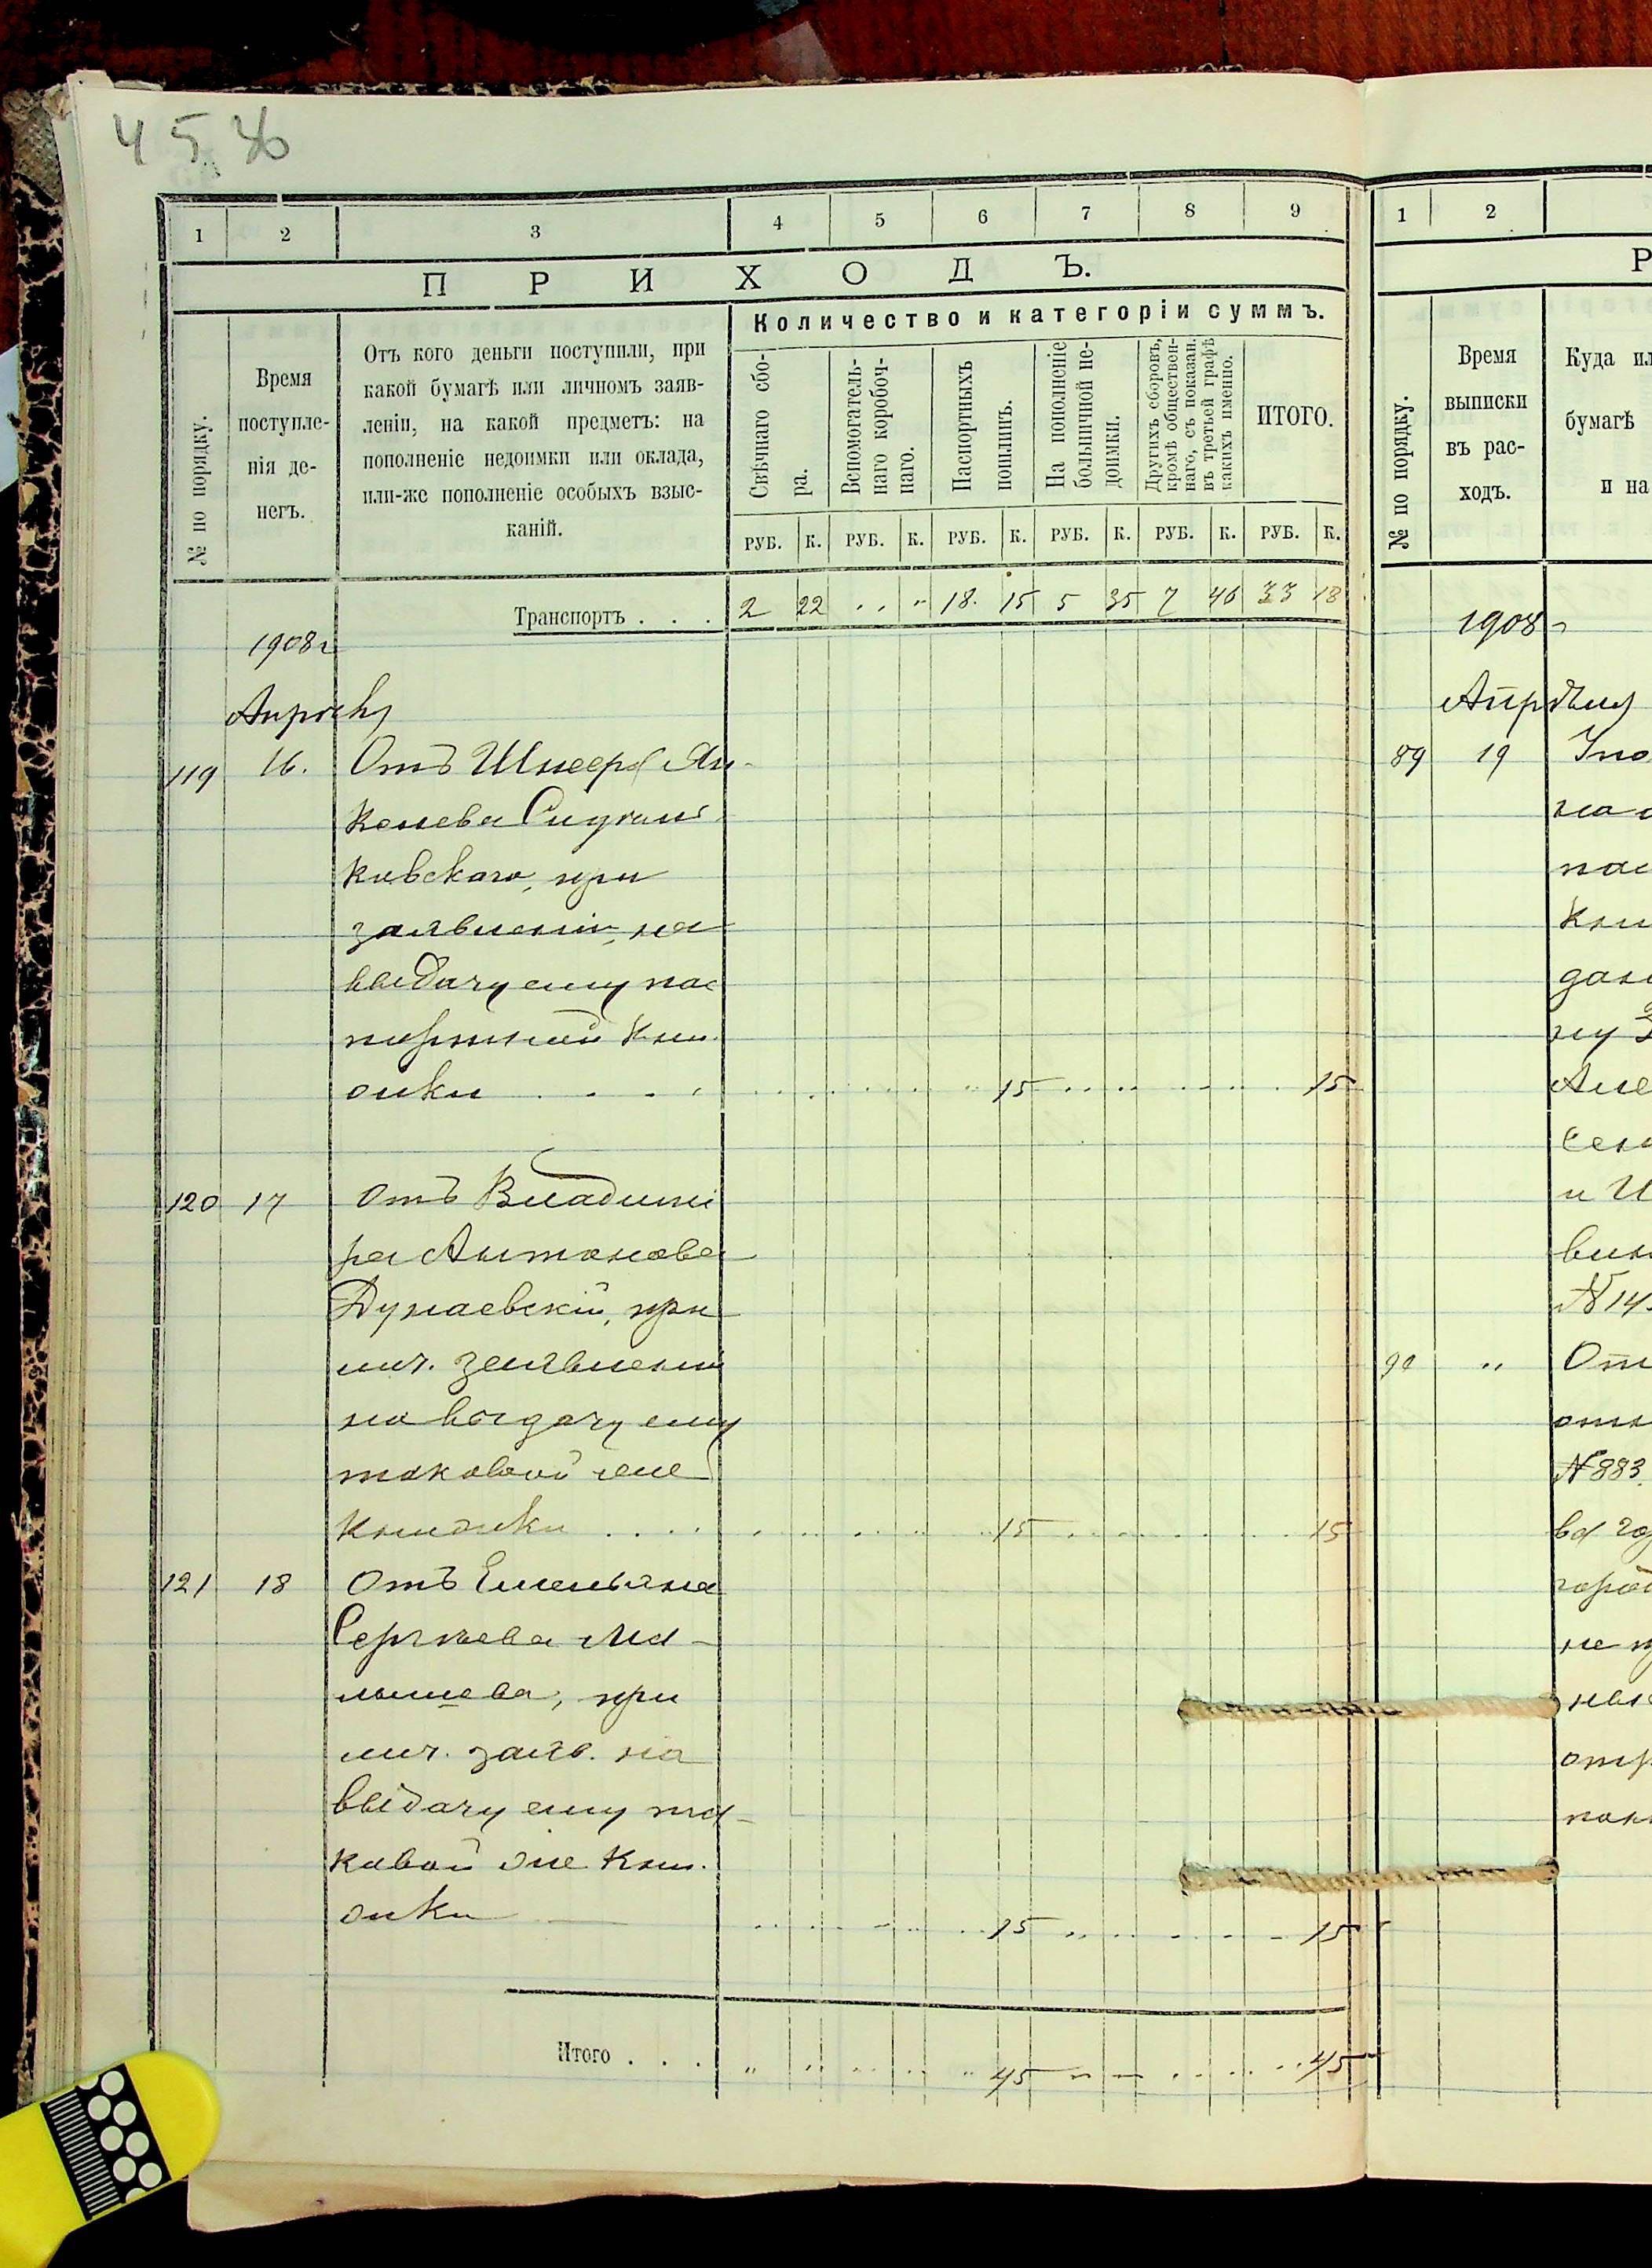 4 5 36
1 2 3 4 5 6 7 8 9
ПРИХОДЪ.
№ по порядку.
Время
поступле-
нія де-
негъ.
Отъ кого деньги поступили, при
какой бумагѣ или личномъ заяв-
леніи, на какой предметъ: на
пополненіе недоимки или оклада,
или-же пополненіе особыхъ взыс-
каній.
Количество и категоріи суммъ.
Свѣчнаго сбо-
ра.
Вспомогатель-
наго коробоч-
наго.
Паспортныхъ
пошлинъ.
На пополненіе
больничной не-
доимки.
Другихъ сборовъ,
кромѣ обществен-
наго, съ показан.
въ третьей графѣ
какихъ именно.
ИТОГО.
РУБ. К. РУБ. К. РУБ. К. РУБ. К. РУБ. К. РУБ. К.
Транспортъ . . . 2 22 „ „ 18. 15 5 35 7 46 33 18
1908 г
Апрѣль
119 16. Отъ Шнеера Ян-
келева
ковскаго, при
заявленіи, на
выдачу ему пас
портной кни-
жки . . . . 15 15
120 17 Отъ Владимі
ра Антонова
Дунаевскій, при
лич. заявленіи
на выдачу ему
таковой же
книжки . . . . 15 15
121 18 Отъ Емельяна
Сергѣева Ма-
лышева, при
лич. заяв. на
выдачу ему та-
ковой же кни-
жки 15 15
Итого . . . 45 45
1 2
Р
№ по порядку.
Время
выписки
въ рас-
ходъ.
Куда ил
бумагѣ
и на
1908 г
Апрѣля
89 19
пас
кни
Але
и И
№ 14
90 „ От
№ 883.
не